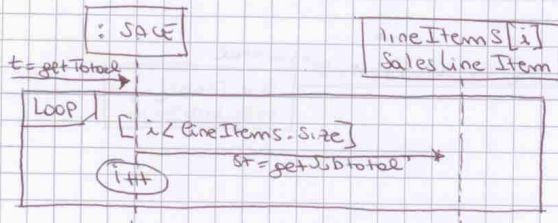 : SALE
lineItems[i]
Sales Line Item
t = getTotal
LOOP
[ i < lineItems.Size]
st = getSubtotal
i++